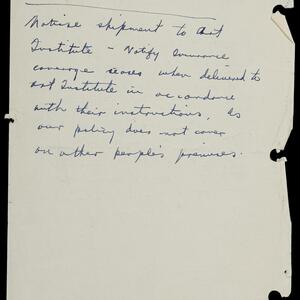 Matisse shipment to Art
Institute - Notify Insurance
converge ceases when delivered to
art Institute in accordance
with their instructions, As
our policy does not cover
on other people's premises.